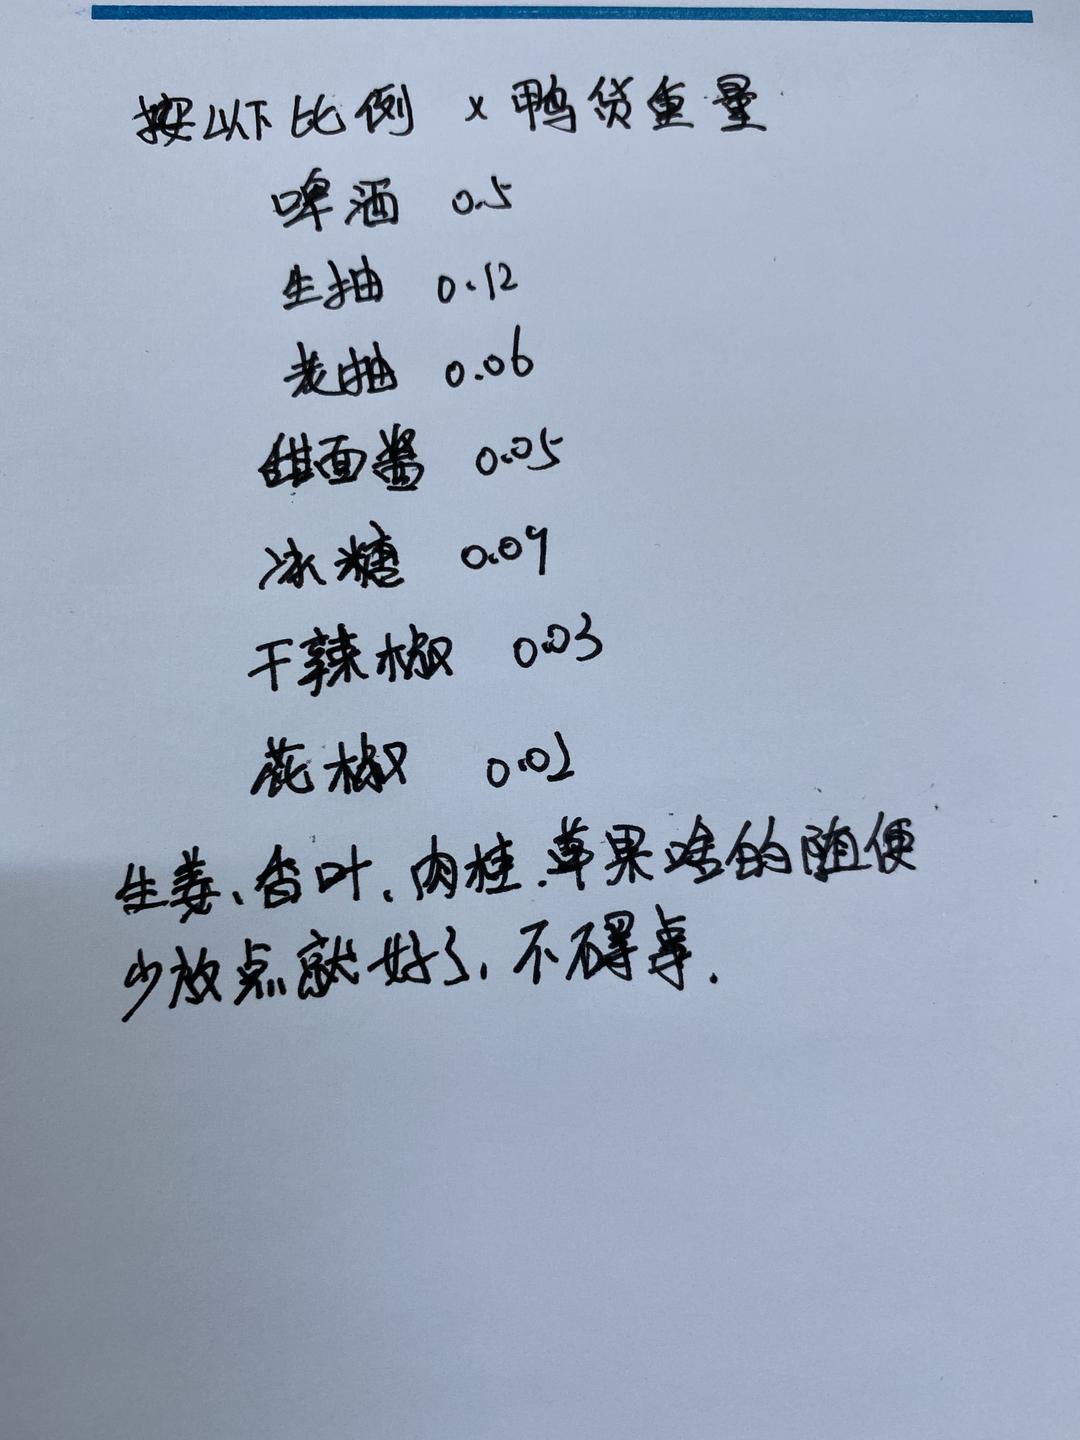 按以下比例 x 鸭货重量
啤酒 0.5
生抽 0.12
老抽 0.06
甜面酱 0.05
冰糖 0.09
干辣椒 0.03
花椒 0.02
生姜、香叶、肉桂、草果啥的随便
少放点就好了，不碍事.